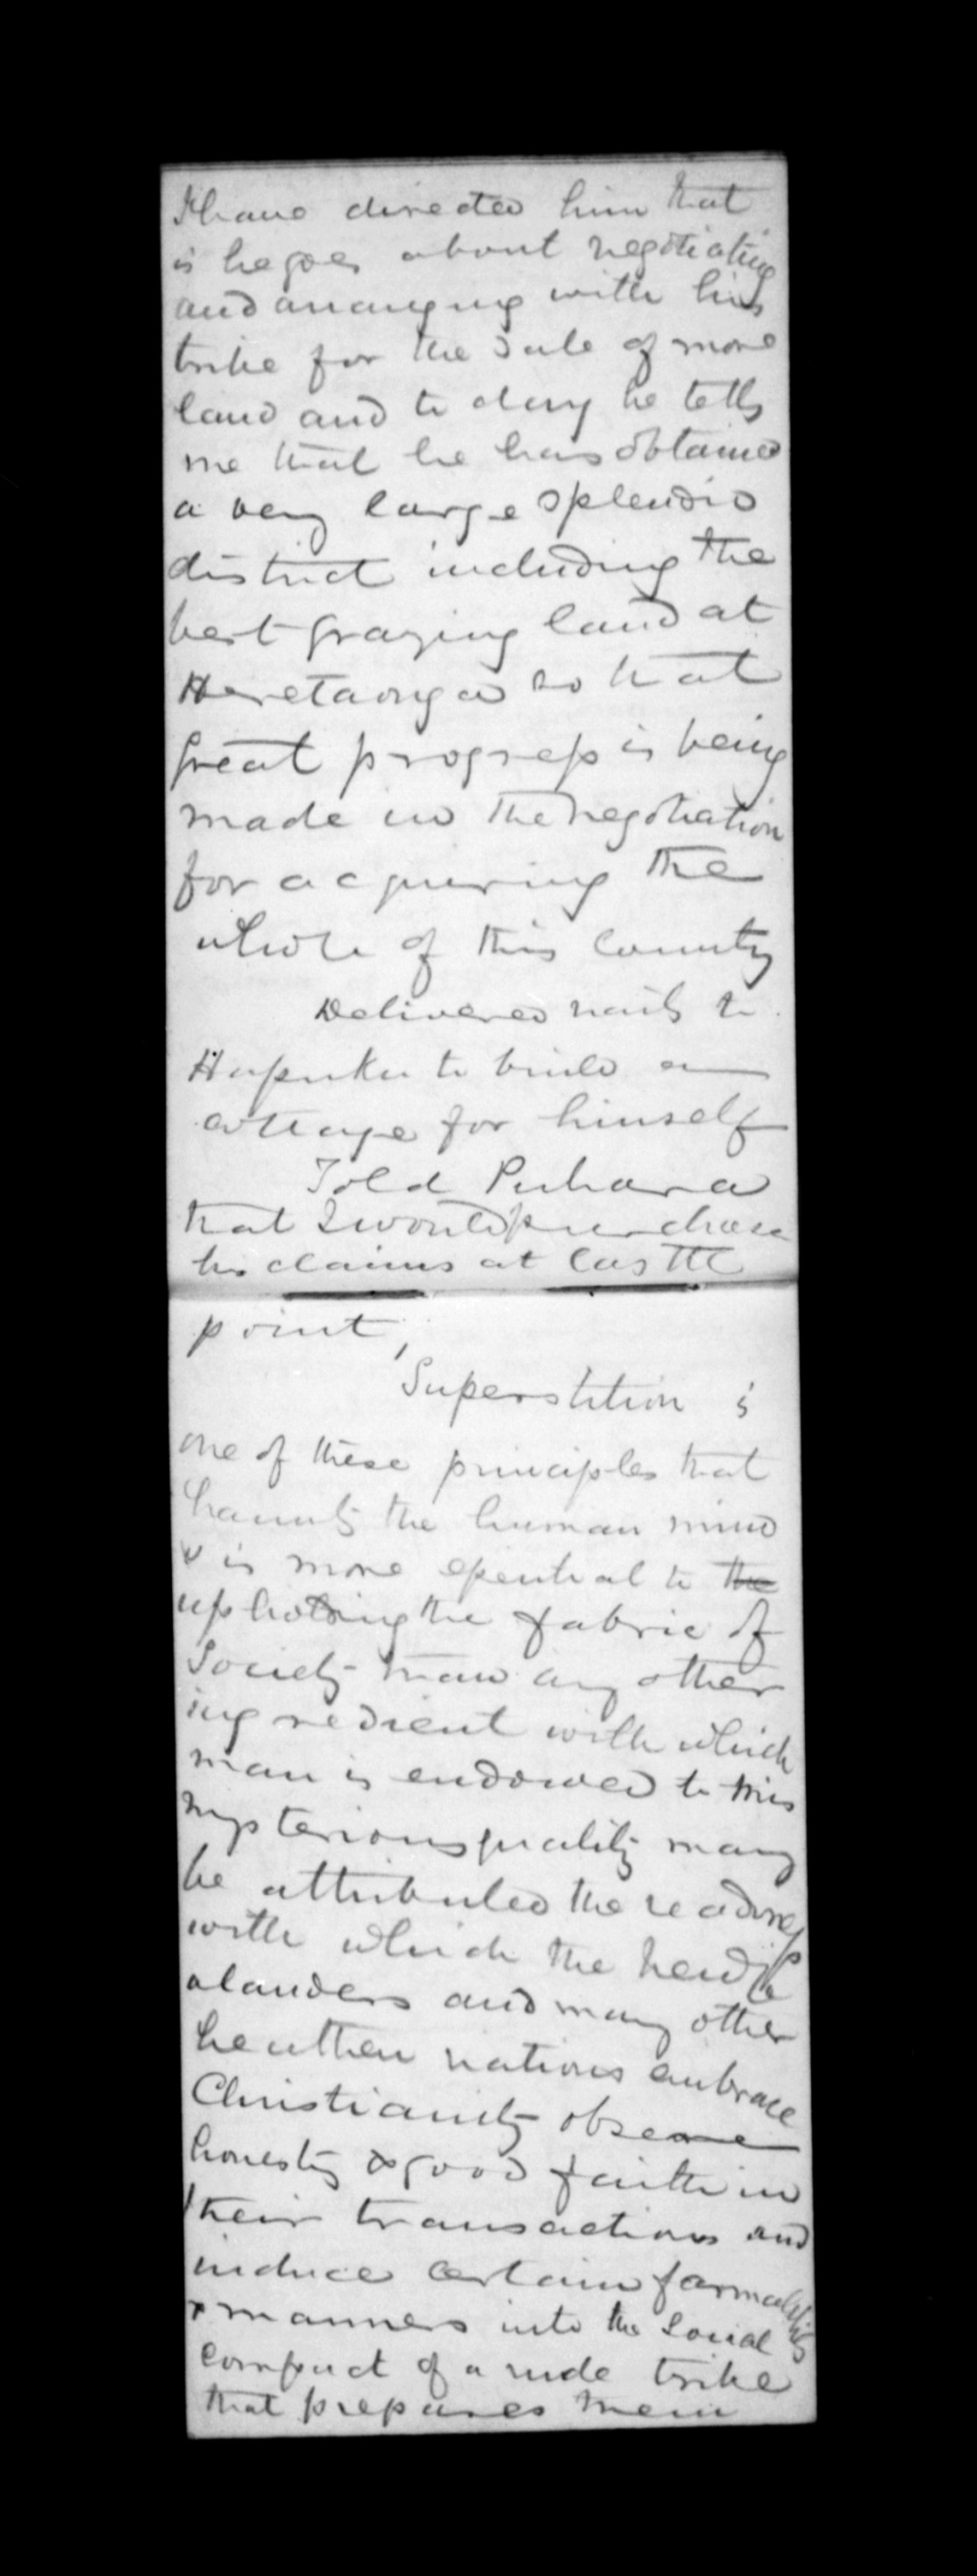 I have directed him that
is he goes about negotiating
and arranging with his
tribe for the sale of more
land and to day he tells
me that he has obtained
a very large splendid
district including the
best grazing land at
Heretaonga so that
great progress is being
made in the negotiation
for acquiring the
whole of this County
Delivered nails to
Hapuku to build a
cottage for himself
Told Puhara
that I would purchase
his claims at Castle
point,
Superstition is
one of these principles that
haunts the human mind
& is more essential to the
upholding the fabric of
Society than any other
ingredient with which
man is endowed to this
mysterious quality may
be attributed the readiness
with which the New Ze
alanders and many other
heathen nations embrace
Christianity observe
honesty & good faith in
their transactions and
induce certain formalities
& manners into the social
compact of a rude tribe
that prepares them